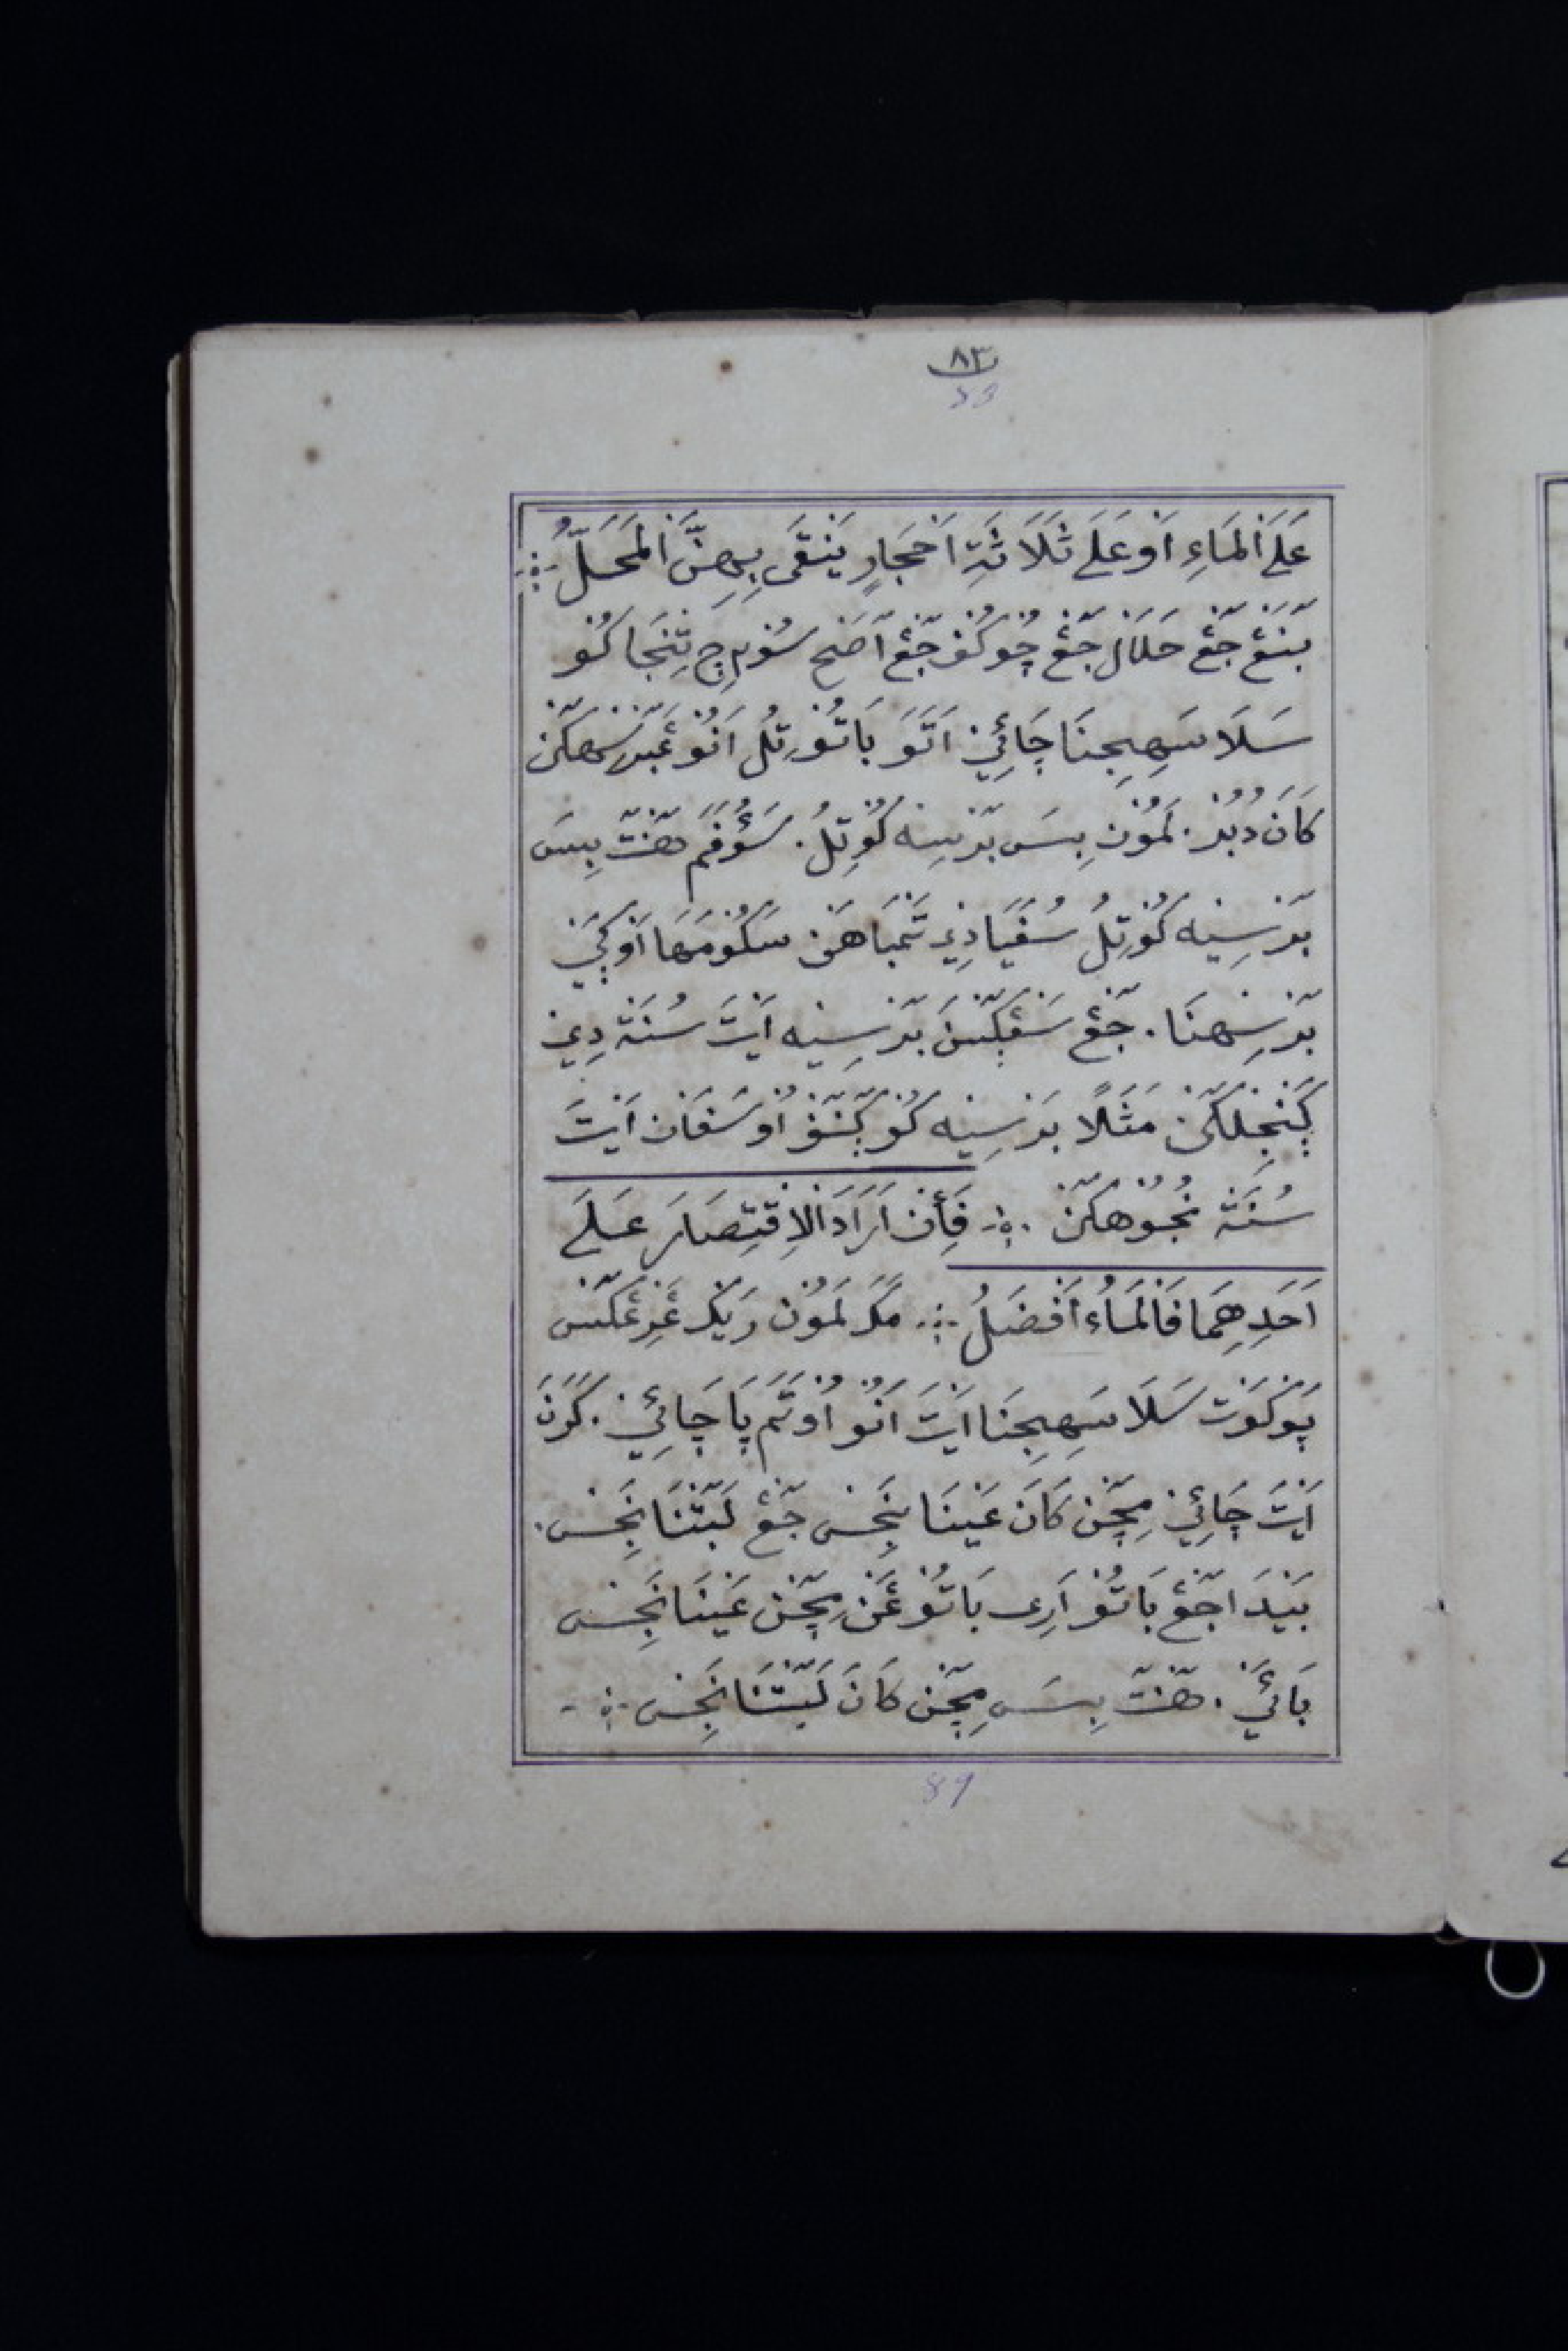 ٨٣
83
عَلَى اَلمَاءِ اَوعَلَى ثَلَاثَةِ اَحجَارٍ يَنقَى بِهِنَّ اَلمَحَلُّ
بَنڠ جَڠ حَلَال جَڠ چُوكُف جَڠ اَضح سُوبرج تِنجَاكُو
سَلَا سَهِيجِنَا چَائِي اَتَوَ بَاتُو تِلُ اَنُو
كَانَ دُبُر. لَمُون بِسَ بَرسِيه كُو تِلُ. سَؤُفَمَ هَنت بِسَ
بَرسِيه كُو تِلُ سُفَيَا دِي تَمبَاهَن سَكُومَهَا اَوكَي
بَرسِهنَا. جَڠ بَرسِيه اَيتَ سُنَة دِي
كَنجِلكَن مَثَلًا بَرسِيه كُو اَيتَ
سُنَة نُجُوهكَن فَأِن اَرَادَ اَلاِقتِصَارَ عَلَى
اَحَدِهِمَا فَالمَاءُ اَفضَلُ مَك لَمُون رَيك
سَلَا سَهِيجِنَا اَيتَ اَنُو اُوتَمَ پَا چَائِي. كَرَنَ
اَيتَ چَائِي مِچَن كَانَ عَينَا نَجِس جَڠ لَبَتنَا نَجِس.
بَيدَا جَڠ بَاتُو اَرِي بَاتُو مِچَن عَينَا نَجِس
بَائَي. هَنت بِسَ مِچَن كَانَ لَبَتنَا نَجِس
89